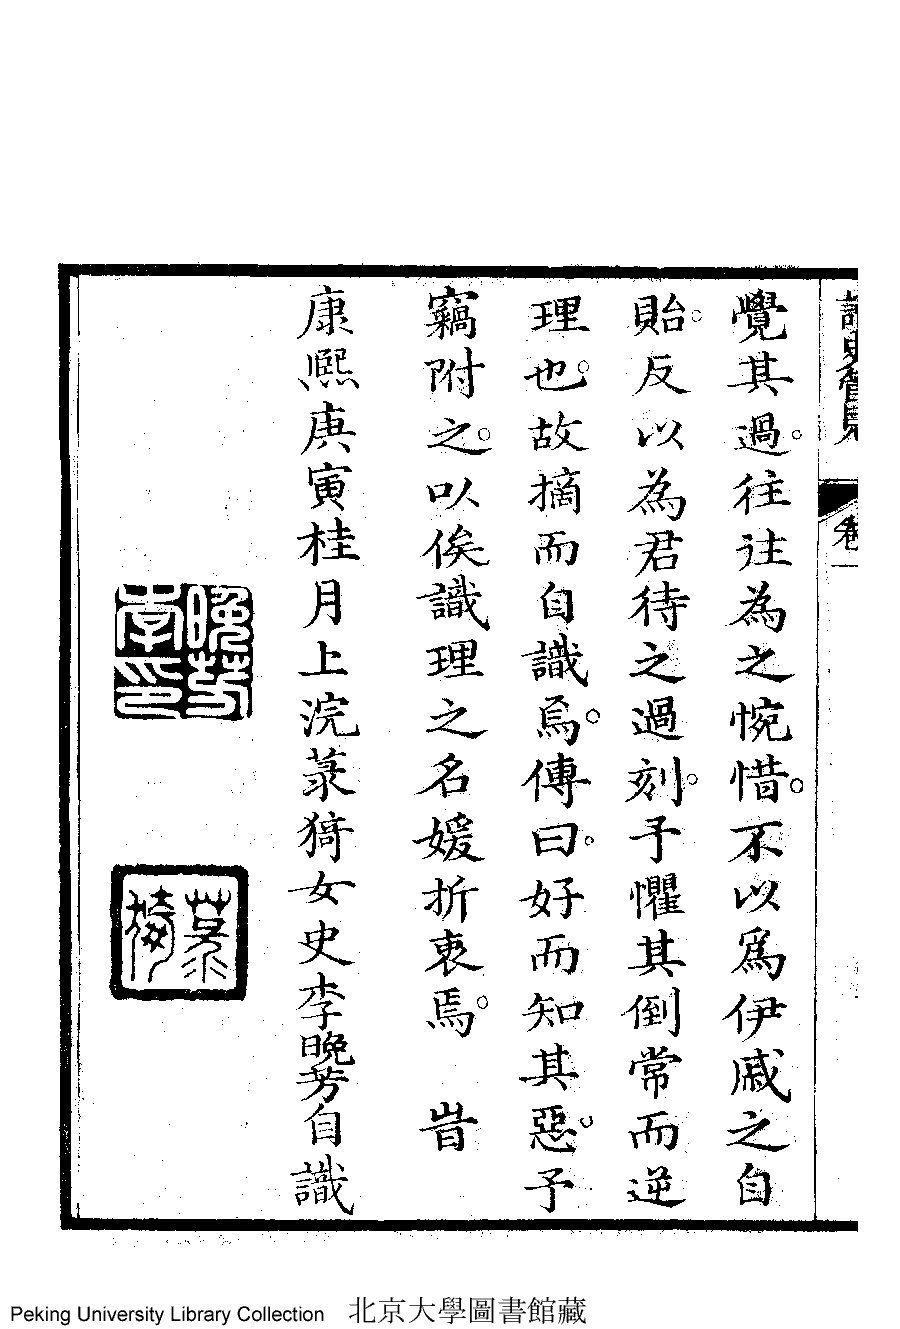 讀史管見 卷一
覺其過。往往為之惋惜。不以爲伊戚之自
貽。反以為君待之過刻。予懼其倒常而逆
理也。故摘而自識焉。傳曰。好而知其惡。予
竊附之。以俟識理之名媛折衷焉。 旹
康熙庚寅桂月上浣菉猗女史李晚芳自識
晚芳李印
菉猗
Peking University Library Collection 北京大學圖書館藏